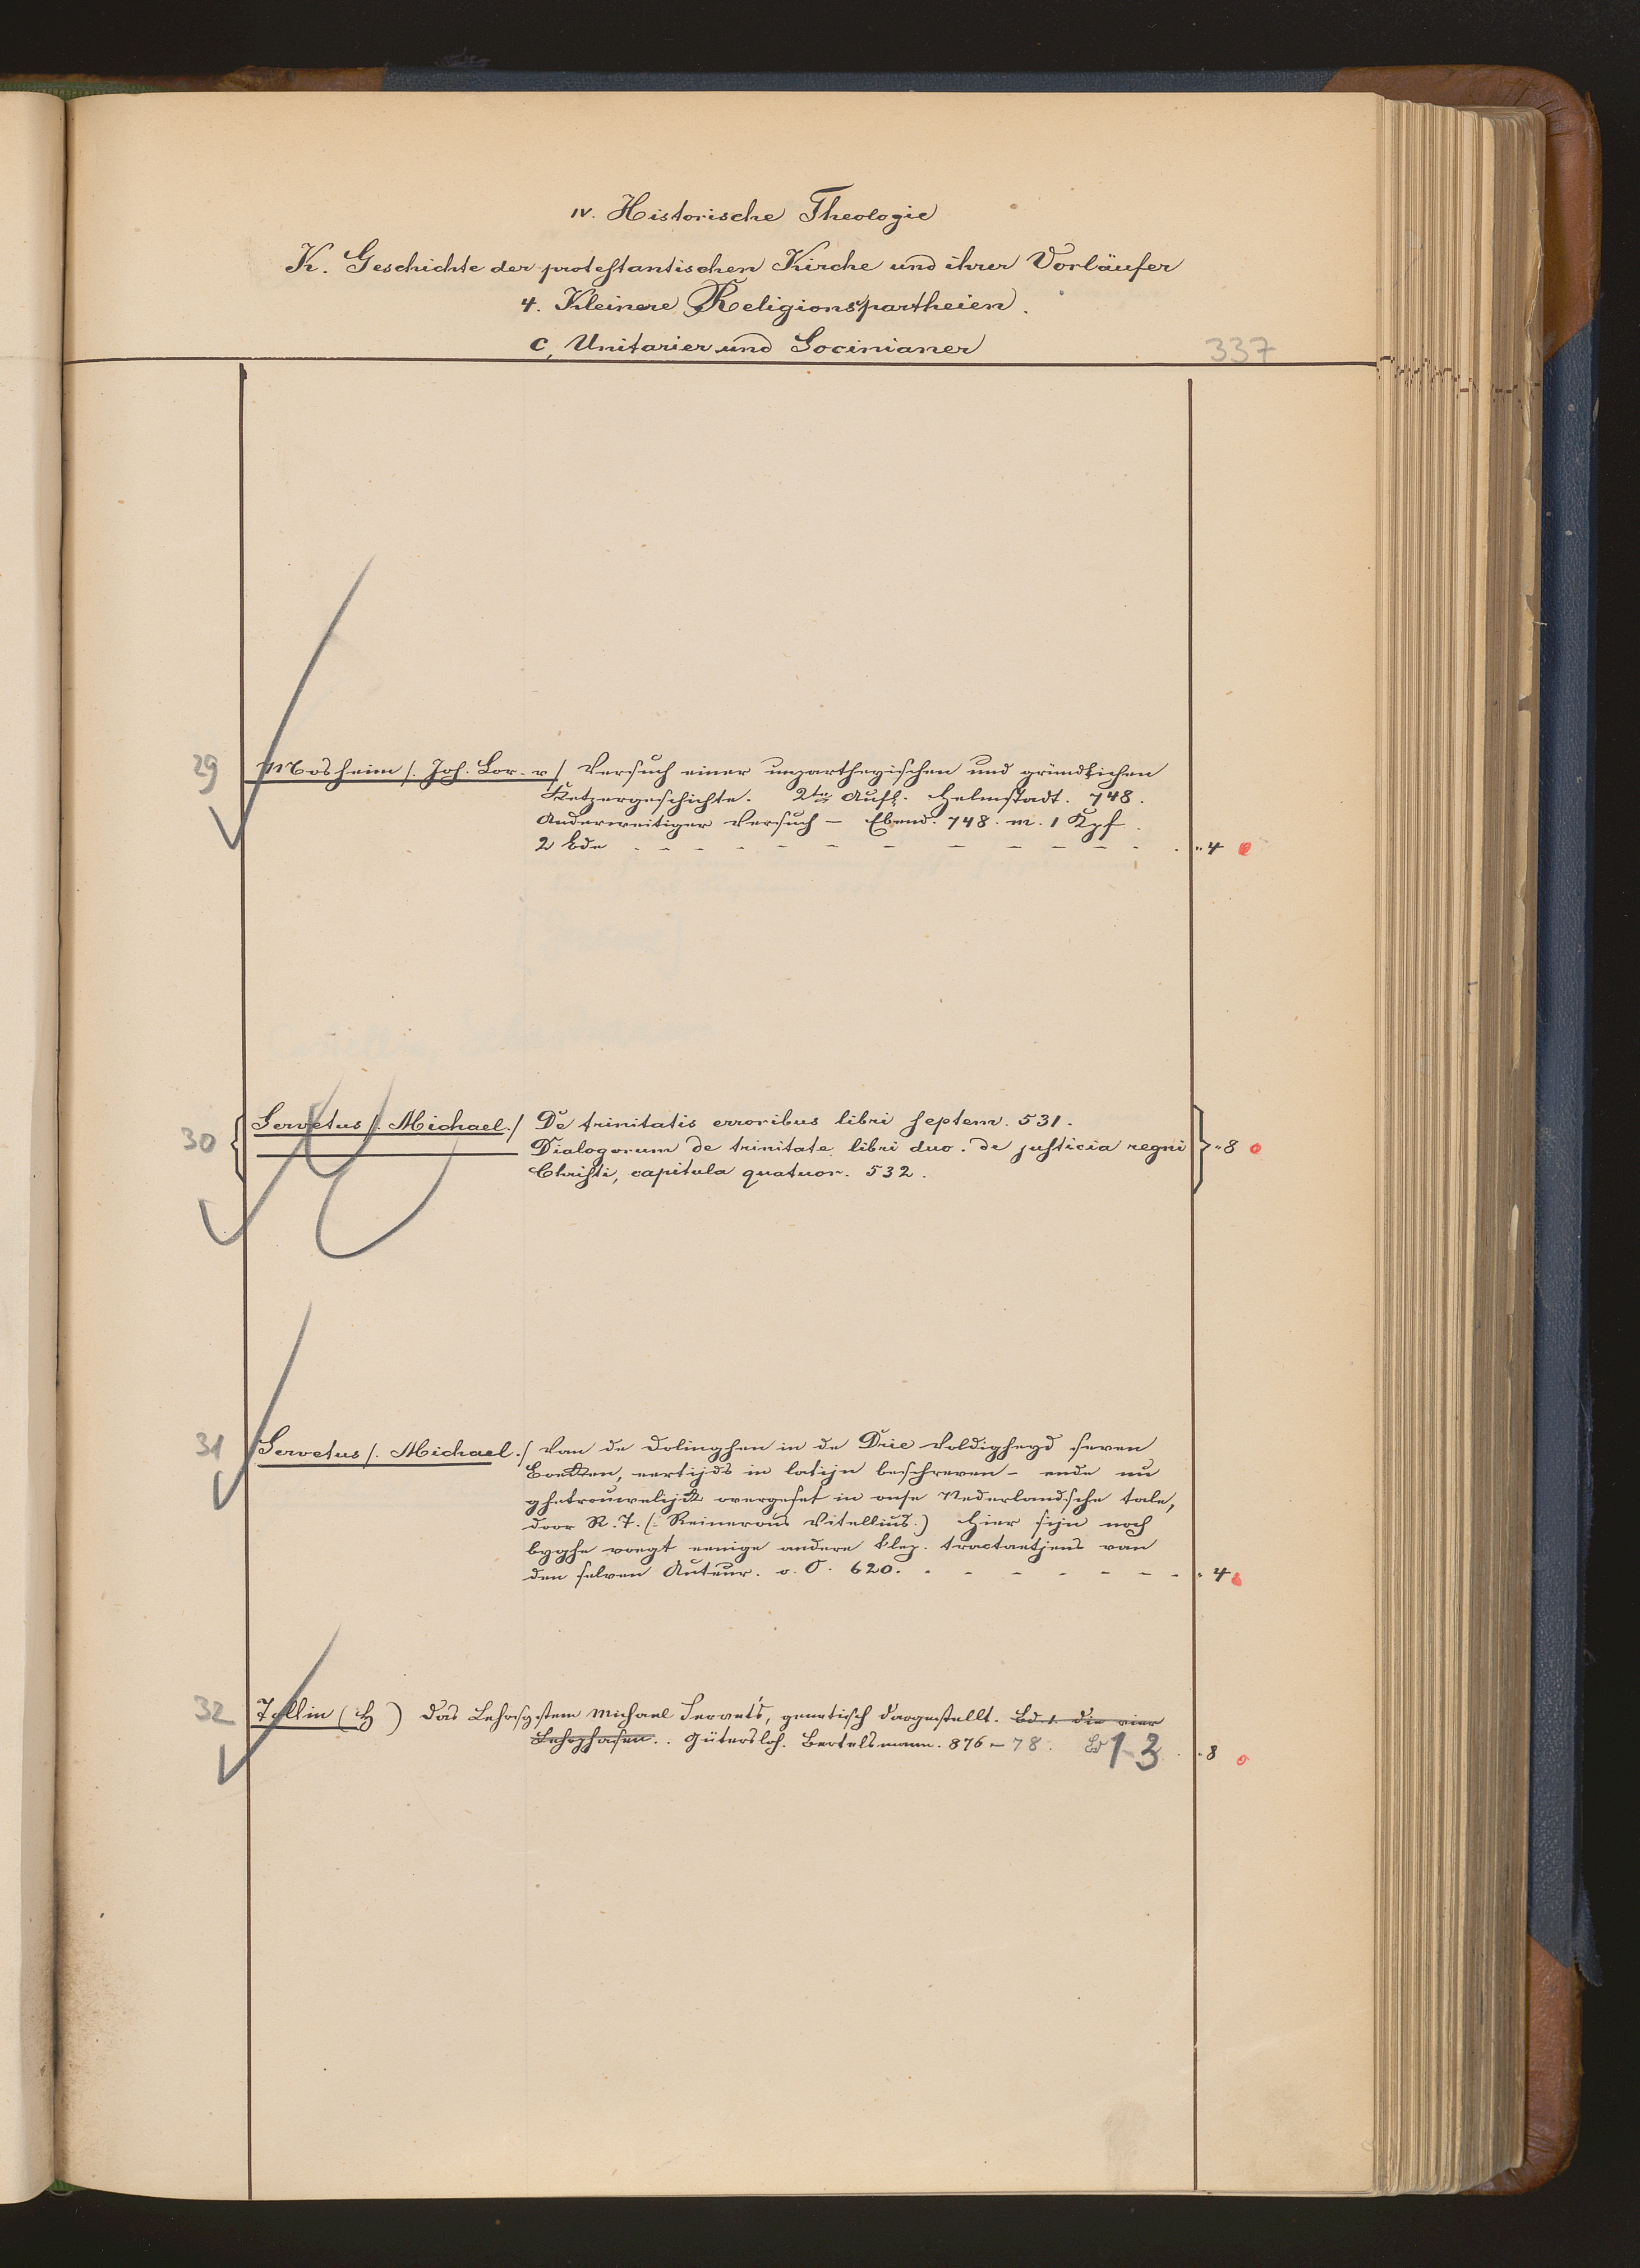 IV. Historische Theologie
K. Geschichte der protestantischen Kirche und ihrer Vorläufer
4. Kleinere Religionspartheien.
c, Unitarier und Socinianer
337
29 Mosheim /. Joh. Lor. v / Versuch einer unpartheyischen und gründlichen
Ketzergeschichte. 2te Aufl. Helmstadt. 748.
Anderweitiger Versuch – Ebend. 748. m. 1 Kpf.
2 Bde - - - - - - - - - - - " 4
30 Servetus /. Michael. / De trinitatis erroribus libri septem. 531.
Dialogorum de trinitate libri duo. de justicia regni " 8
Christi, capitula quatuor. 532.
31 Servetus /. Michael. / Van de Dolinghen in de Drie voldigheyd seven
Boeken, eertijds in latijn beschreven – ende nu
ghetrouwelijk overgeset in onse Nederlandsche tale,
door R. T. (: Reinerous Vitellius.) Hier sijn noch
byghe voegt eenige andere tractaetjens van
den selven Auteur. o. O. 620. - - - - - - - " 4
32 Tollin (H) Das Lehrsystem Michael Servet's, genetisch dargestellt. Bd. 1. Die vier
Lehrphasen.. Gütersloh. Bertelsmann. 876 – 78. Bd 1-3 . " 8